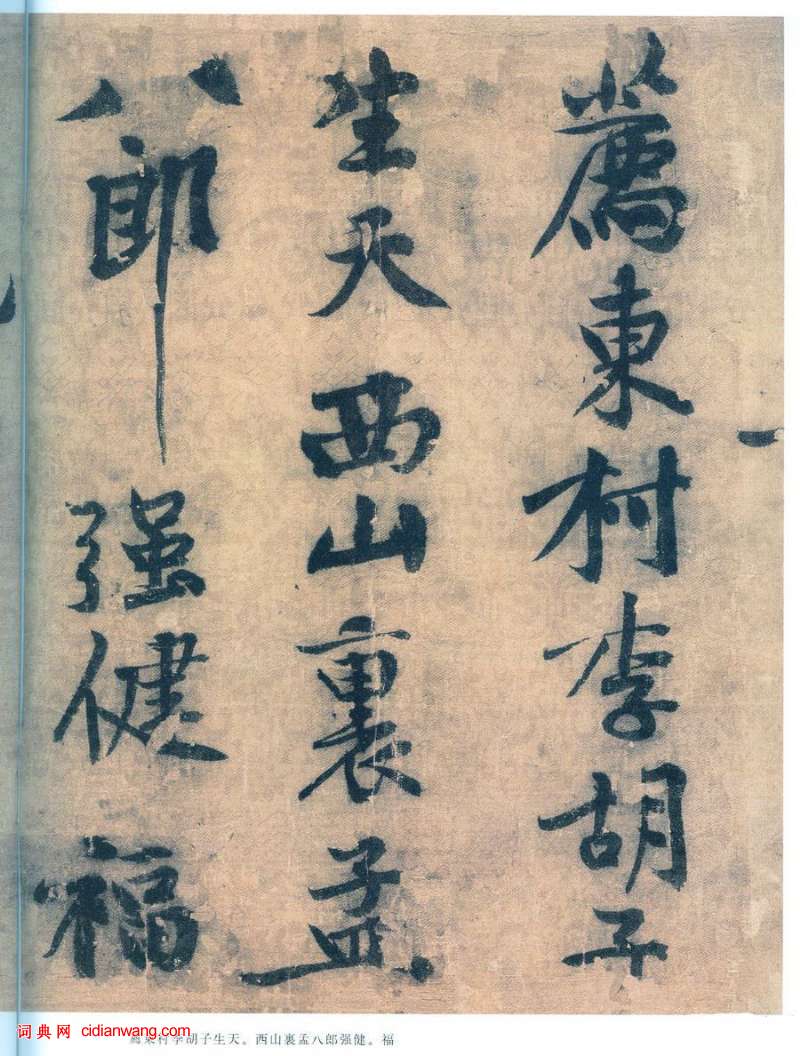 薦東村李胡子
生天西山裏孟
八郎强健福
词典网 cidianwang.com
薦東村李胡子生天。西山裏孟八郎强健。福